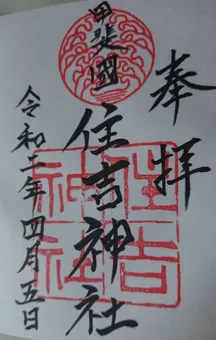 奉拝
甲斐國
住吉神社
令和二年四月五日
住吉
神社